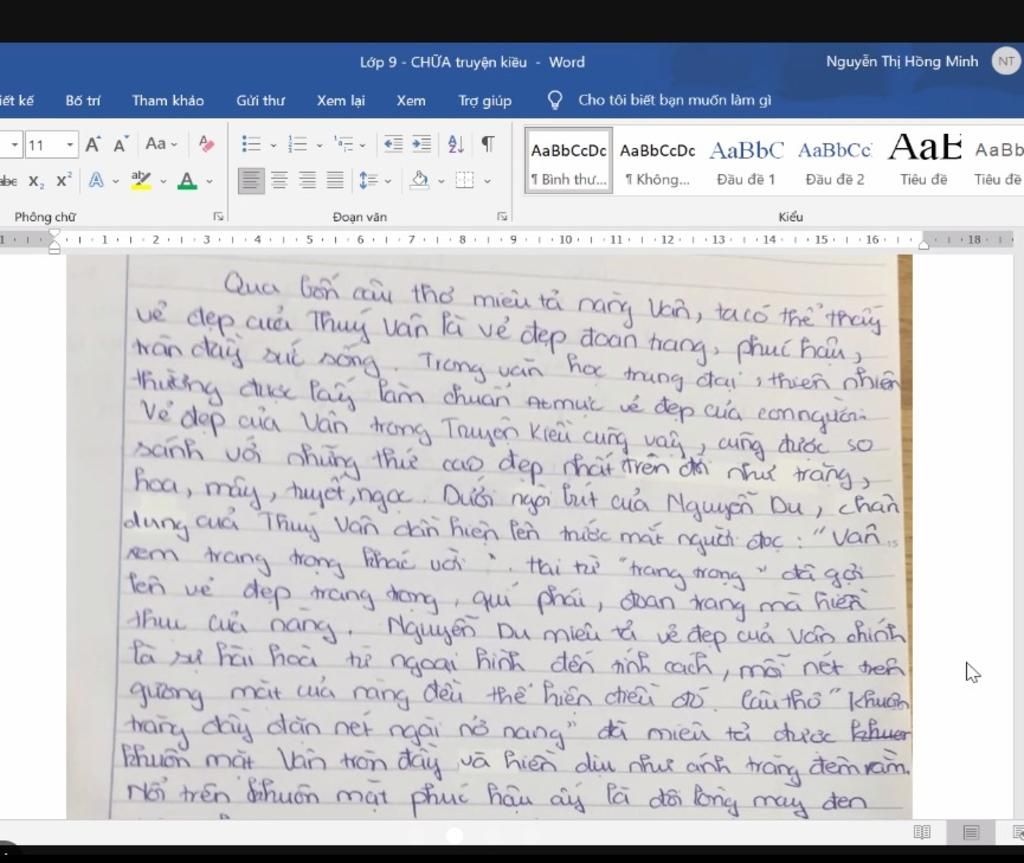 Lớp 9 - CHỮA truyện kiều - Word
Nguyễn Thị Hồng Minh
NT
iết kế Bố trí Tham khảo Gửi thư Xem lại Xem Trợ giúp Cho tôi biết bạn muốn làm gì
11 Aa
AaBbCcDc AaBbCcDc AaBbC AaBbCc AaB AaBb
¶ Bình thư... ¶ Không... Đầu đề 1 Đầu đề 2 Tiêu đề Tiêu đề
Phông chữ Đoạn văn Kiểu
1 1 2 3 4 5 6 7 8 9 10 11 12 13 14 15 16 18
Qua bốn câu thơ miêu tả nàng Vân, ta có thể thấy
vẻ đẹp của Thuý Vân là vẻ đẹp đoan trang, phúc hậu,
tràn đầy sức sống. Trong văn học trung đại, thiên nhiên
thường được lấy làm chuẩn mực vẻ đẹp của con người.
Vẻ đẹp của Vân trong Truyện Kiều cũng vậy, cũng được so
sánh với những thứ cao đẹp nhất trên đời như trăng,
hoa, mây, tuyết, ngọc. Dưới ngòi bút của Nguyễn Du, chân
dung của Thuý Vân dần hiện lên trước mắt người đọc: "Vân
xem trang trọng khác vời". Hai từ "trang trọng" đã gợi
lên vẻ đẹp trang trọng, quí phái, đoan trang mà hiền
thục của nàng. Nguyễn Du miêu tả vẻ đẹp của Vân chính
là sự hài hoà từ ngoại hình đến tính cách, mỗi nét trên
gương mặt của nàng đều thể hiện điều đó. Câu thơ "Khuôn
trăng đầy đặn nét ngài nở nang" đã miêu tả được
khuôn mặt Vân tròn đầy và hiền dịu như ánh trăng đêm rằm.
Nổi trên khuôn mặt phúc hậu ấy là đôi lông mày đen